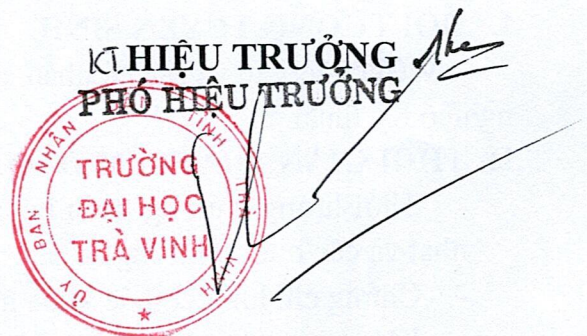 KT.HIỆU TRƯỞNG
PHÓ HIỆU TRƯỞNG
ỦY BAN NHÂN DÂN TỈNH TRÀ VINH
TRƯỜNG
ĐẠI HỌC
TRÀ VINH